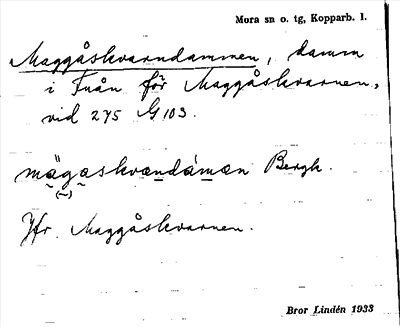 Mora sn o. tg, Kopparb. l.
Maggåskvarndammen, damm
i Fuån för Maggåskvarnen,
vid 275 G 103.
mägaskvændámæn Bergk.
(~)
Jfr. Maggåskvarnen.
Bror Lindén 1933